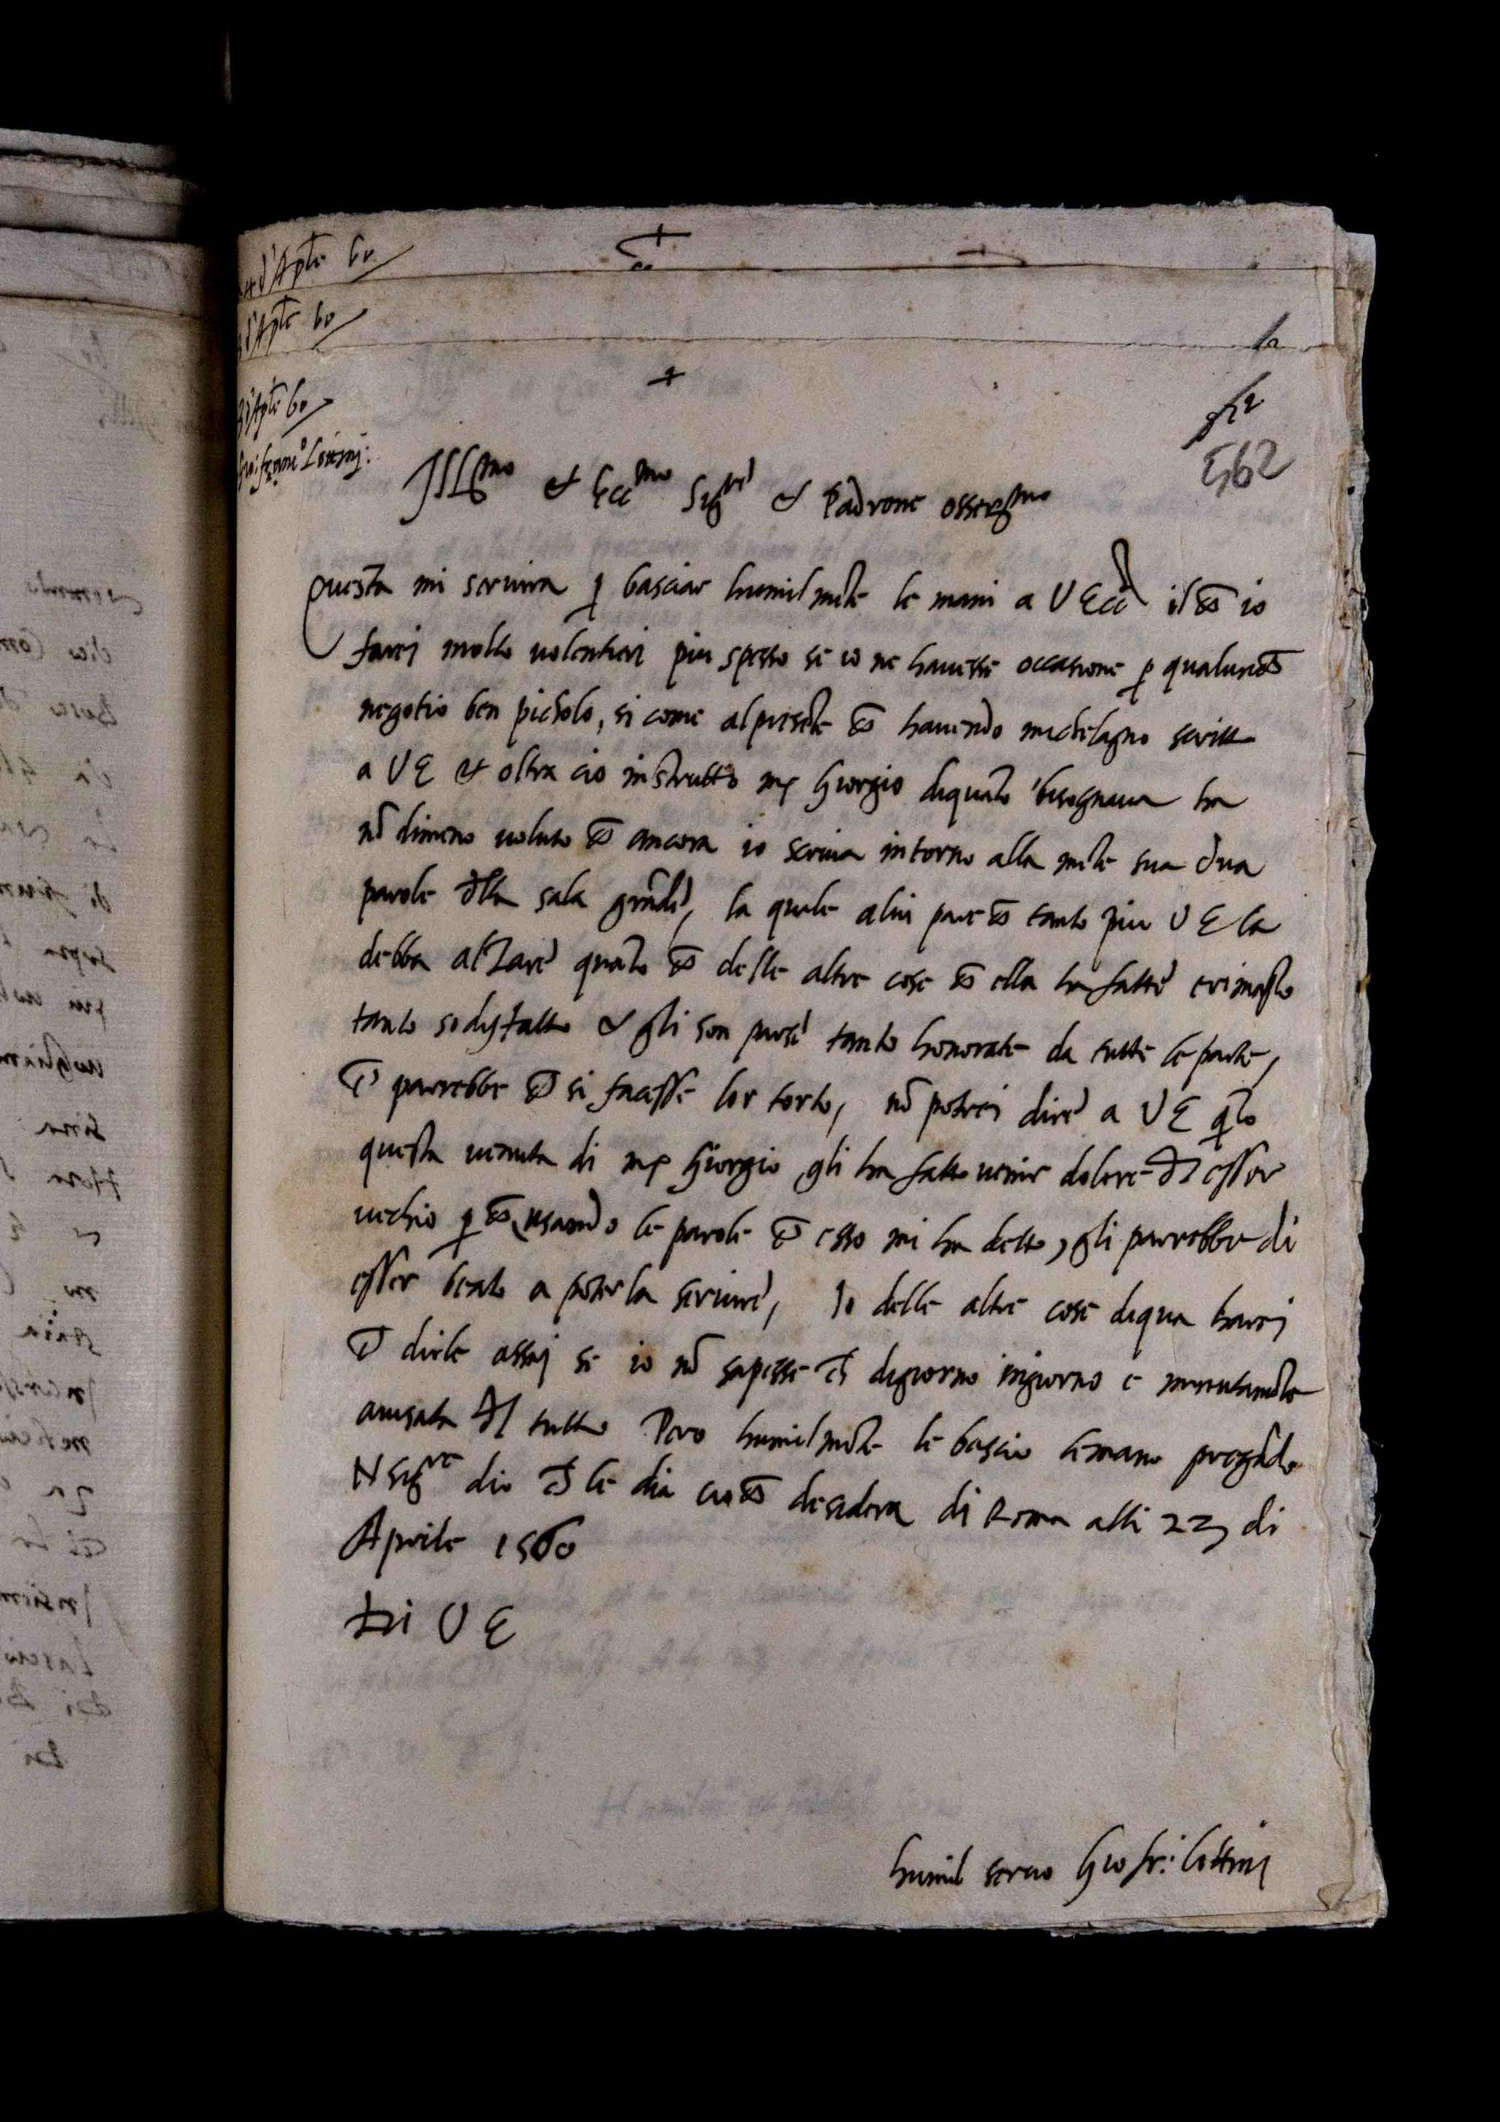 d'Aple 60
d'Aple 60
+
d'Aple 60
562
Ill.mo et Ecc.mo Sig.re et Padrone osser.mo
Questa mi seruira p basciar humilmte le mani a V Ecc il ch io
farei molto uolentieri piu spesso se io ne hauesse occasione p qualunch
negotio ben picholo, si come al presete ch hauendo michelagno scritto
a V E et oltra cio instrutto m Giorgio di quato bisognaua ha
nō dimeno uoluto ch ancora io scriua intorno alla mete sua dua
parole dlla sala grāde, la quale a lui pare ch tanto piu V E la
debba alzare quāto ch delle altre cose ch ella ha fatte e rimasto
tanto sodisfatto et gli son parse tanto honorate da tutte le parte,
ch parrebbe ch si facesse lor torto, nō potrei dire a V E qto
questa uenuta di m Giorgio gli ha fatto uenir dolore dl esser
uechio p ch, usando le parole ch esso mi ha detto, gli parrebbe di
esser beato a poterla seruire, Io delle altre cose di qua harei
ch dirle assai se io nō sapesse ch di giorno in giorno e minutamēte
auisata dl tutto Pero humilmēte le bascio le mano pregādo
N Sig.re dio ch le dia cio ch desidera di Roma alli 23 di
Aprile 1560
Di V E
humil seruo Gio fr: lottini